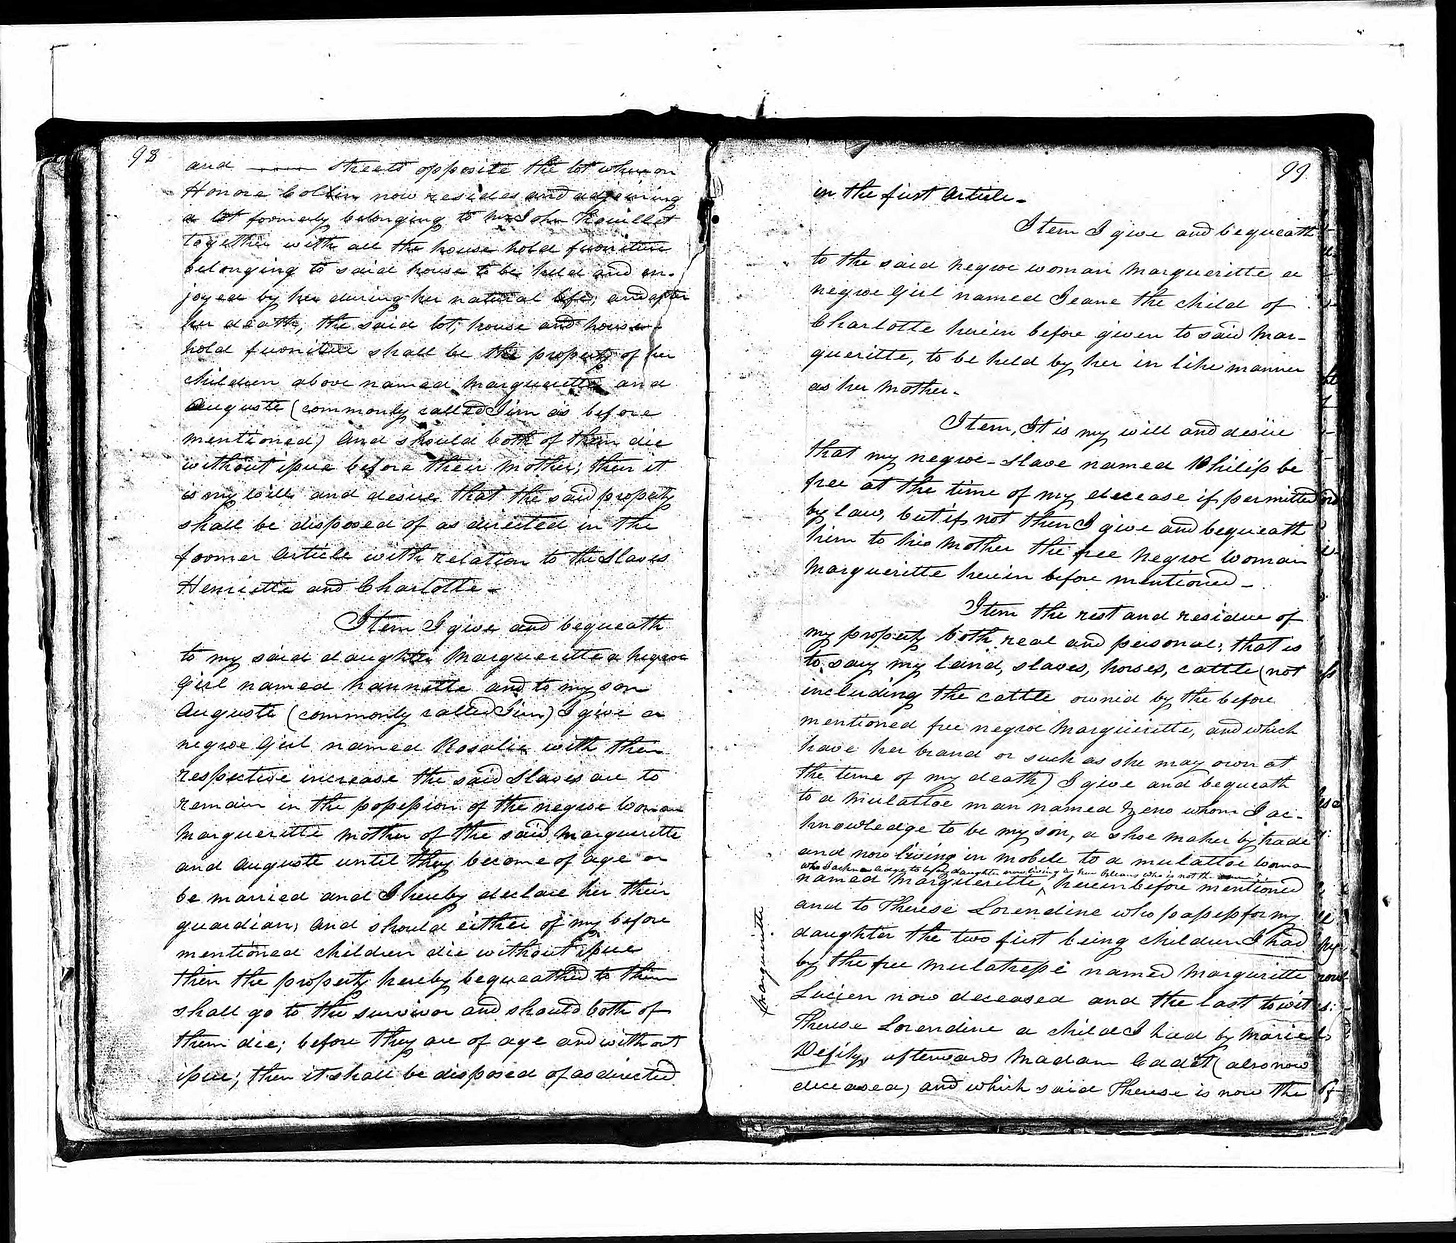 98
and ——— streets opposite the lot whereon
Honore Collin now resides and adjoining
a lot formerly belonging to Mr John Trouillet
together with all the house hold furniture
belonging to said house to be held and en-
joyed by her during her natural life; and after
her death, the said lot, house and house-
hold furniture shall be the property of her
children above named Margueritte and
Auguste (commonly called Jim as before
mentioned) And should both of them die
without issue before their mother; then it
is my will and desire that the said property
shall be disposed of as directed in the
former Article with relation to the Slaves
Henriette and Charlotte.-
Item I give and bequeath
to my said daughter Margueritte a negroe
girl named Nannette and to my son
Auguste (commonly called Jim) I give a
negroe Girl named Rosalie with their
respective increase the said Slaves are to
remain in the possession of the negroe woman
Margueritte mother of the said Marguerite
and Auguste until they become of age or
be married and I hereby declare her their
guardian, And should either of my before
mentioned children die without issue
then the property hereby bequeathed to them
shall go to the survivor and should both of
them die; before they are of age and without
issue; then it shall be disposed of as directed
99
in the first Article.-
Item I give and bequeath
to the said Negroe woman Marguerite a
negroe Girl named Jeane the child of
Charlotte herein before given to said Mar-
gueritte, to be held by her in like manner
as her Mother.-
Item, It is my will and desire
that my negroe-Slave named Philip be
free at the time of my decease if permitted
by law, but if not then I give and bequeath
him to his Mother the free Negroe Woman
Margueritte herein before mentioned-
Item the rest and residue of
my property both real and personal; that is
to say my land, slaves, horses, cattle (not
including the cattle owned by the before
mentioned free negroe Margueritte, and which
have her brand or such as she may own at
the time of my death) I give and bequeath
to a Mulattoe man named Zeno whom I ac-
knowledge to be my son, a shoe maker by trade
and now living in Mobile to a mulattoe woman
who I acknowledge to be my daughter now living in New Orleans who is not the
named Marguerite ^ herein before mentioned
and to Therese Lorendine who passes for my
daughter the two first being children I had
by the free mulatresse named Margueritte
Lucien now deceased and the last to wit
Therese Lorendine a child I had by Marie
afterwards Madam Cadet (also now
deceased) and which said Therese is now the
Marguerite